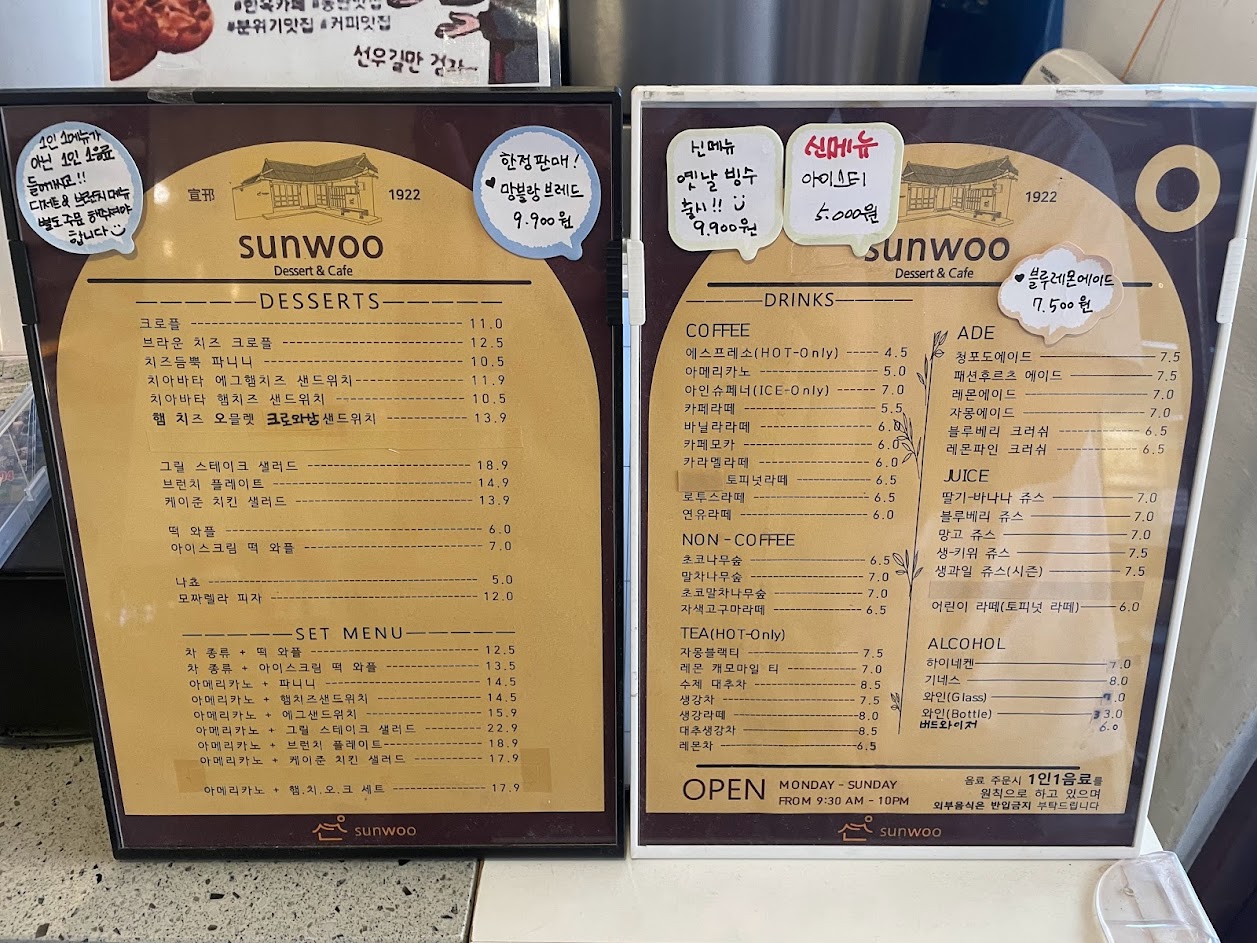 #한옥카페 #동탄맛집
#분위기맛집 #커피맛집
선우길만 걷자~
1인 1메뉴가
아닌 1인 1음료
들께쇠고!!
디저트& 브런치메뉴
별도 주문 해주셔야
합니다
한정판매!
♥ 망블랑브레드
9.900원
宣邘
1922
sunwoo
Dessert & Cafe
DESSERTS
크로플 11.0
브라운 치즈 크로플 12.5
치즈듬뿍 파니니 10.5
치아바타 에그햄치즈 샌드위치 11.9
치아바타 햄치즈 샌드위치 10.5
햄 치즈 오믈렛 크로와상샌드위치 13.9
그릴 스테이크 샐러드 18.9
브런치 플레이트 14.9
케이준 치킨 샐러드 13.9
떡 와플 6.0
아이스크림 떡 와플 7.0
나쵸 5.0
모짜렐라 피자 12.0
SET MENU
차 종류 + 떡 와플 12.5
차 종류 + 아이스크림 떡 와플 13.5
아메리카노 + 파니니 14.5
아메리카노 + 햄치즈샌드위치 14.5
아메리카노 + 에그샌드위치 15.9
아메리카노 + 그릴 스테이크 샐러드 22.9
아메리카노 + 브런치 플레이트 18.9
아메리카노 + 케이준 치킨 샐러드 17.9
아메리카노 + 햄.치.오.크 세트 17.9
sunwoo
신메뉴
옛날 빙수
출시!!
9.900원
신메뉴
아이스티
5.000원
1922
sunwoo
Dessert & Cafe
♥ 블루레몬에이드
7.500원
DRINKS
COFFEE
에스프레소(HOT-Only) 4.5
아메리카노 5.0
아인슈페너(ICE-Only) 7.0
카페라떼 5.5
바닐라라떼 6.0
카페모카 6.0
카라멜라떼 6.0
토피넛라떼 6.5
로투스라떼 6.5
연유라떼 6.0
NON-COFFEE
초코나무숲 6.5
말차나무숲 7.0
초코말차나무숲 7.0
자색고구마라떼 6.5
TEA(HOT-Only)
자몽블랙티 7.5
레몬 캐모마일 티 7.0
수제 대추차 8.5
생강차 7.5
생강라떼 8.0
대추생강차 8.5
레몬차 6.5
ADE
청포도에이드 7.5
패션후르츠 에이드 7.5
레몬에이드 7.0
자몽에이드 7.0
블루베리 크러쉬 6.5
레몬파인 크러쉬 6.5
JUICE
딸기-바나나 쥬스 7.0
블루베리 쥬스 7.0
망고 쥬스 7.0
생-키위 쥬스 7.5
생과일 쥬스(시즌) 7.5
어린이 라떼(토피넛 라떼) 6.0
ALCOHOL
하이네켄 7.0
기네스 8.0
와인(Glass) 7.0
와인(Bottle) 33.0
버드와이저 6.0
OPEN
MONDAY - SUNDAY
FROM 9:30 AM - 10PM
음료 주문시 1인1음료를
원칙으로 하고 있으며
외부음식은 반입금지 부탁드립니다
sunwoo